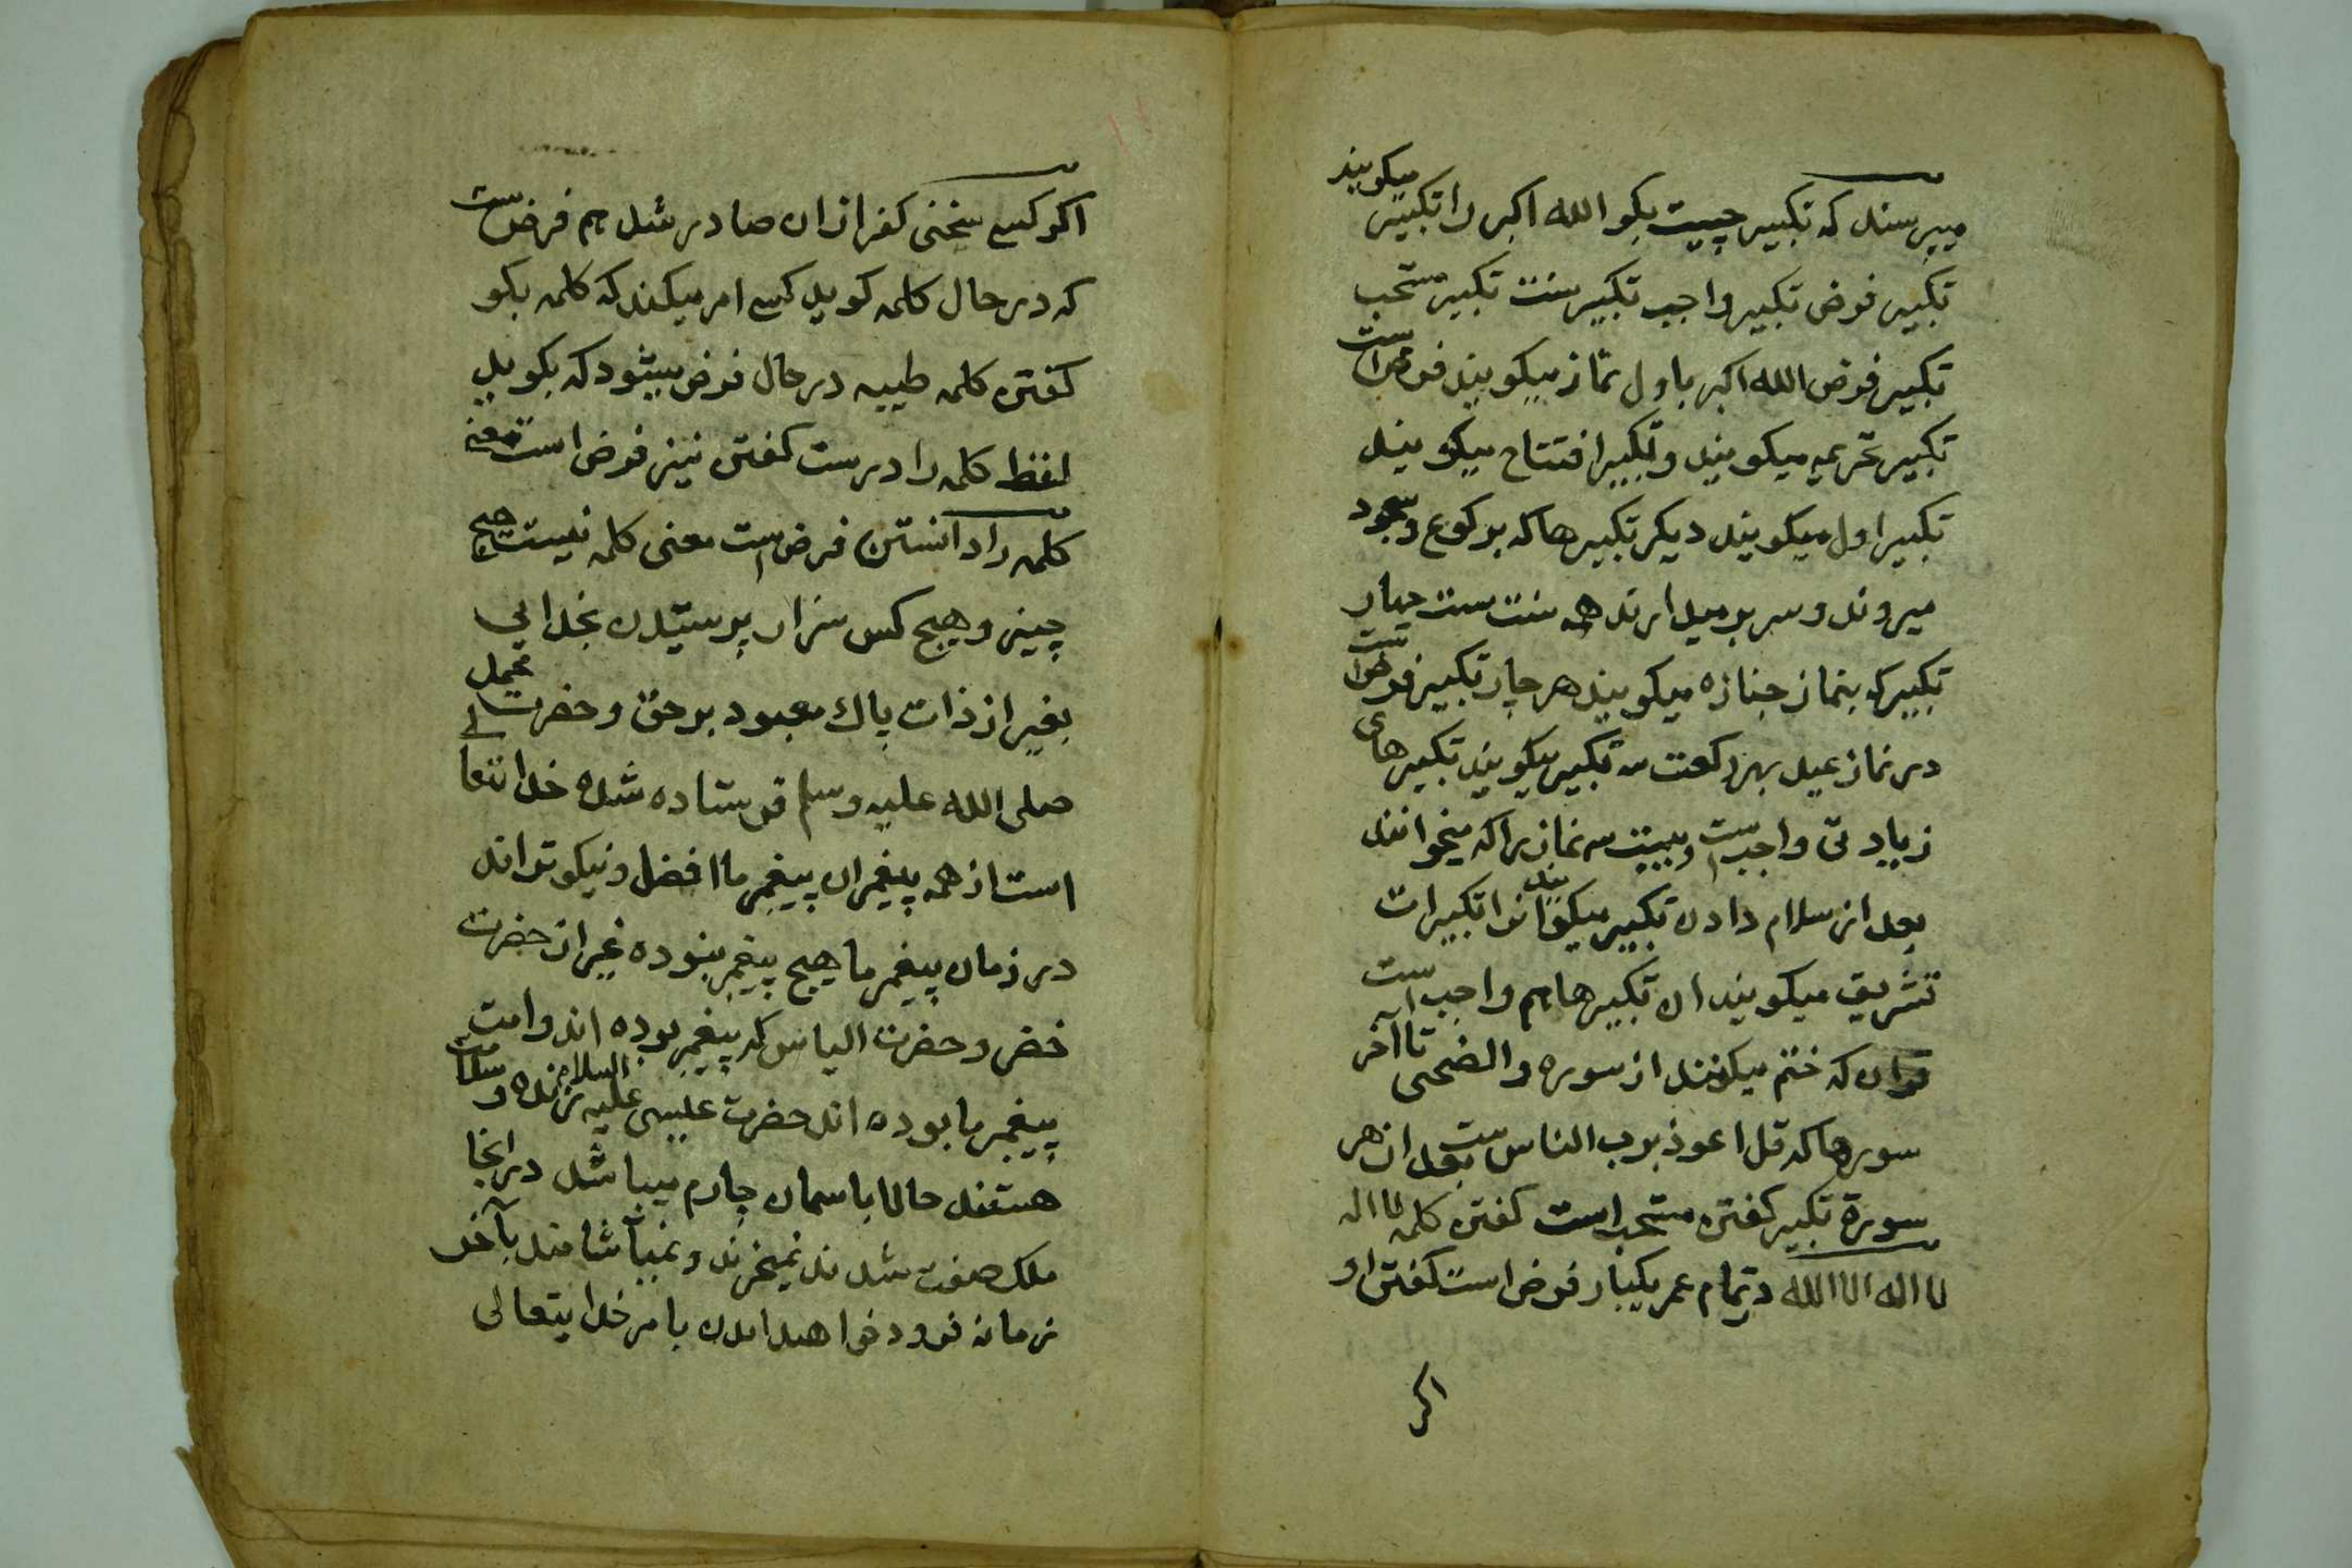 میپرسند که تکبیر چیست بکو الله اکبر را تکبیر میکویند
تکبیر فرض تکبیر واجب تکبیر سنت تکبیر مستحب
تکبیر فرض الله اکبر باول نماز میکویند فرض است
تکبیر تحریمه میکویند و تکبیر افتتاح میکویند
تکبیر اول میکویند دیکر تکبیرها که برکوع وسجود
میروند و سر برمیدارند همه سنت ست چهار
تکبیر که بنماز جنازه میکویند هر چار تکبیر فرض است
در نماز عید بهر رکعت سه تکبیر میکویند تکبیرهای
زیادتی واجب است وبیست سه نماز را که میخوانند
بعد از سلام دادن تکبیر میکویند انرا تکبیرات
تشریق میکویند ان تکبیرها هم واجب است
قران که ختم میکنند از سوره والضحی تا آخر
سورها که قل اعوذ برب الناس ست بعد از هر
سورة تکبیر کفتن مستحب است کفتن کلمه لا اله
لا اله الا الله در تمام عمر یکبار فرض است کفتن او
اکر
اکر کسے سخنی کفر ازان صادر شد هم فرض ست
که در حال کلمه کوید کسے امر میکند که کلمه بکو
کفتن کلمه طیبه در حال فرض میشود که بکوید
لفظ کلمه را درست کفتن نیز فرض است معنے
کلمه را دانستن فرض است معنی کلمه نیست هیچ
چیزے وهیچ کس سزاوار پرستیدن بخدایی
بغیر از ذات پاک معبود برحق و حضرت محمد
صلی الله علیه وسلم فرستاده شده خدا تعالے
است از همه پیغمبران پیغمبر ما افضل و نیکوتراند
در زمان پیغمبر ما هیچ پیغمبر نبوده غیر از حضرت
خضر و حضرت الیاس که پیغمبر بوده اند و امت
پیغمبر ما بوده اند حضرت عیسی علیه السلام زنده و سلامت
هستند حالا باسمان چارم میباشد در انجا
ملک صفت شدند نمیخرند و نمیآشامند بآخر
زمانه فرود خواهد امدن بامر خدایتعالی